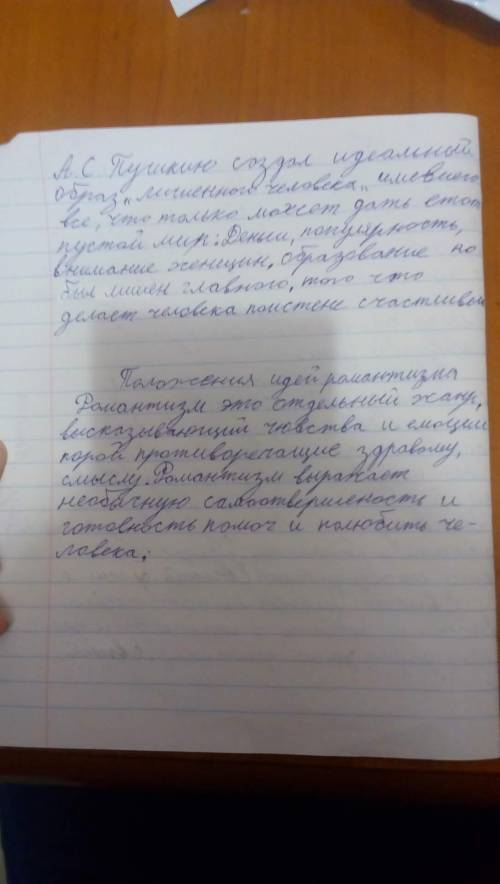 А.С. Пушкин создал идеальный
образ „лишенного человека„ имевшего
все, что только может дать этот
пустой мир: Деньги, популярность,
внимание женщин, образование но
был лишен главного, того что
делает человека поистене счастливым
Положения идей романтизма
Романтизм это отдельный жанр,
высказывающий чувства и емоции
порой противоречащие здравому,
смыслу. Романтизм выражает
необычную самоотверженость и
готовность помоч и полюбить че-
ловека.